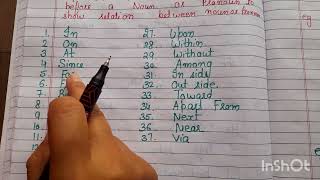 before a Noun or Pronoun to
show relation between noun or
1. In
2. On
3. At
4 Since
5 For
6
7
8
9
10
11
27. Upon
28. Within
29. Without
30. Among
31. In side
32. Out side
33. Toward
34. Apart From
35. Next
36. Near
37. Via
InShOt